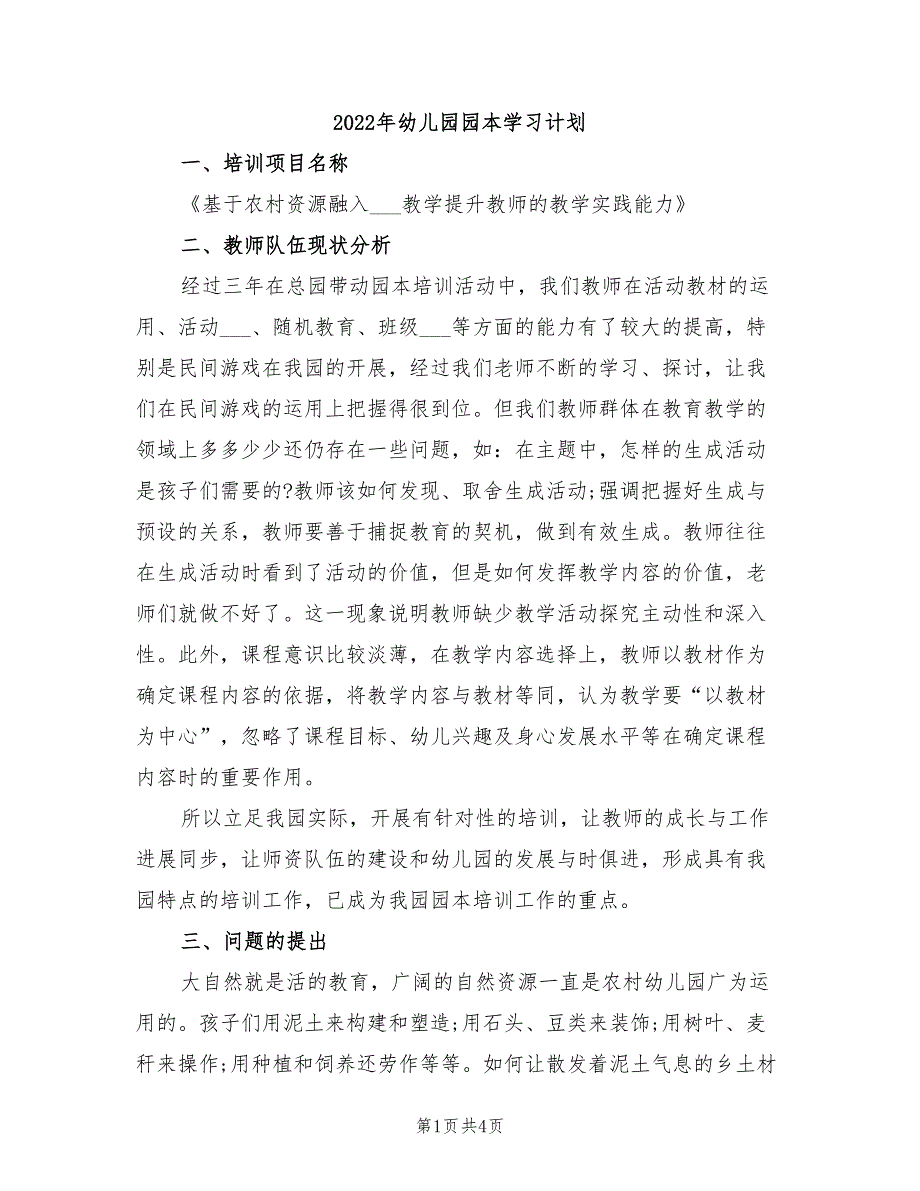 2022年幼儿园园本学习计划
一、培训项目名称
《基于农村资源融入___教学提升教师的教学实践能力》
二、教师队伍现状分析
经过三年在总园带动园本培训活动中，我们教师在活动教材的运
用、活动___、随机教育、班级___等方面的能力有了较大的提高，特
别是民间游戏在我园的开展，经过我们老师不断的学习、探讨，让我
们在民间游戏的运用上把握得很到位。但我们教师群体在教育教学的
领域上多多少少还仍存在一些问题，如：在主题中，怎样的生成活动
是孩子们需要的?教师该如何发现、取舍生成活动;强调把握好生成与
预设的关系，教师要善于捕捉教育的契机，做到有效生成。教师往往
在生成活动时看到了活动的价值，但是如何发挥教学内容的价值，老
师们就做不好了。这一现象说明教师缺少教学活动探究主动性和深入
性。此外，课程意识比较淡薄，在教学内容选择上，教师以教材作为
确定课程内容的依据，将教学内容与教材等同，认为教学要“以教材
为中心”，忽略了课程目标、幼儿兴趣及身心发展水平等在确定课程
内容时的重要作用。
所以立足我园实际，开展有针对性的培训，让教师的成长与工作
进展同步，让师资队伍的建设和幼儿园的发展与时俱进，形成具有我
园特点的培训工作，已成为我园园本培训工作的重点。
三、问题的提出
大自然就是活的教育，广阔的自然资源一直是农村幼儿园广为运
用的。孩子们用泥土来构建和塑造;用石头、豆类来装饰;用树叶、麦
秆来操作;用种植和饲养还劳作等等。如何让散发着泥土气息的乡土材
第1页共4页